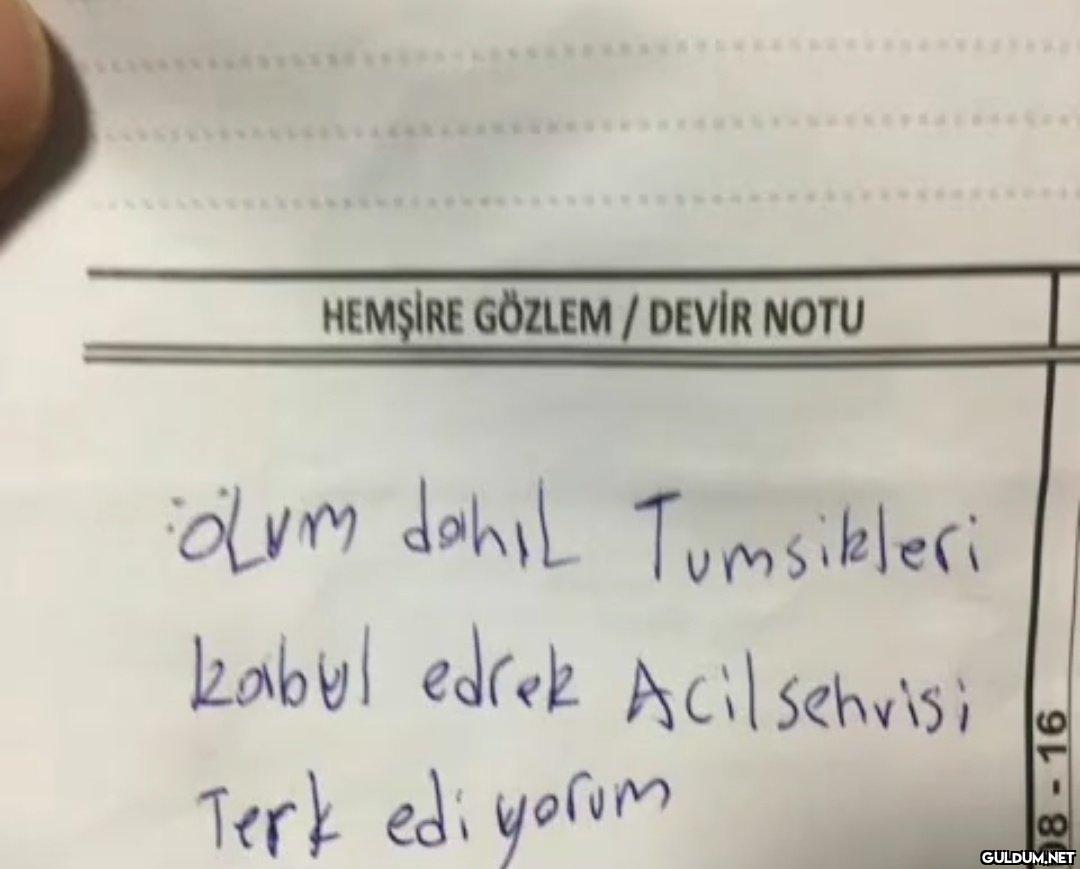 HEMŞİRE GÖZLEM / DEVİR NOTU
ölüm dahıl Tumsikleri
kabul edrek Acil sehvisi
Terk ediyorum
08 - 16
GULDUM.NET